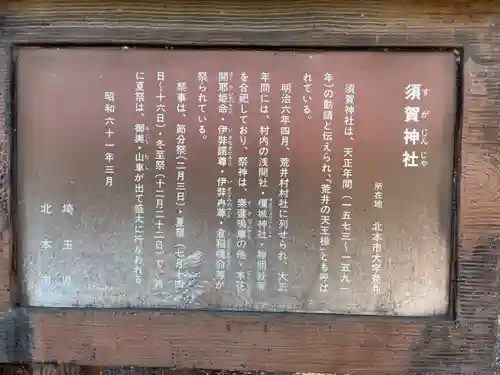 須賀神社
すがじんじゃ
所在地 北本市大字荒井
須賀神社は、天正年間(一五七三〜一五九一
年)の勧請と伝えられ、「荒井の天王様」とも呼ば
れている。
明治六年四月、荒井村村社に列せられ、大正
年間には、村内の浅間社・橿城神社・神明社等
を合祀しており、祭神は、素盞嗚尊の他、木花
開耶姫命・伊弉諾尊・伊弉冉尊・倉稲魂命等が
祭られている。
祭事は、節分祭(二月三日)・夏祭(七月十四
日〜十六日)・冬至祭(十二月二十二日)で、特
に夏祭は、御輿・山車が出て盛大に行なわれる。
昭和六十一年三月
埼玉県
北本市